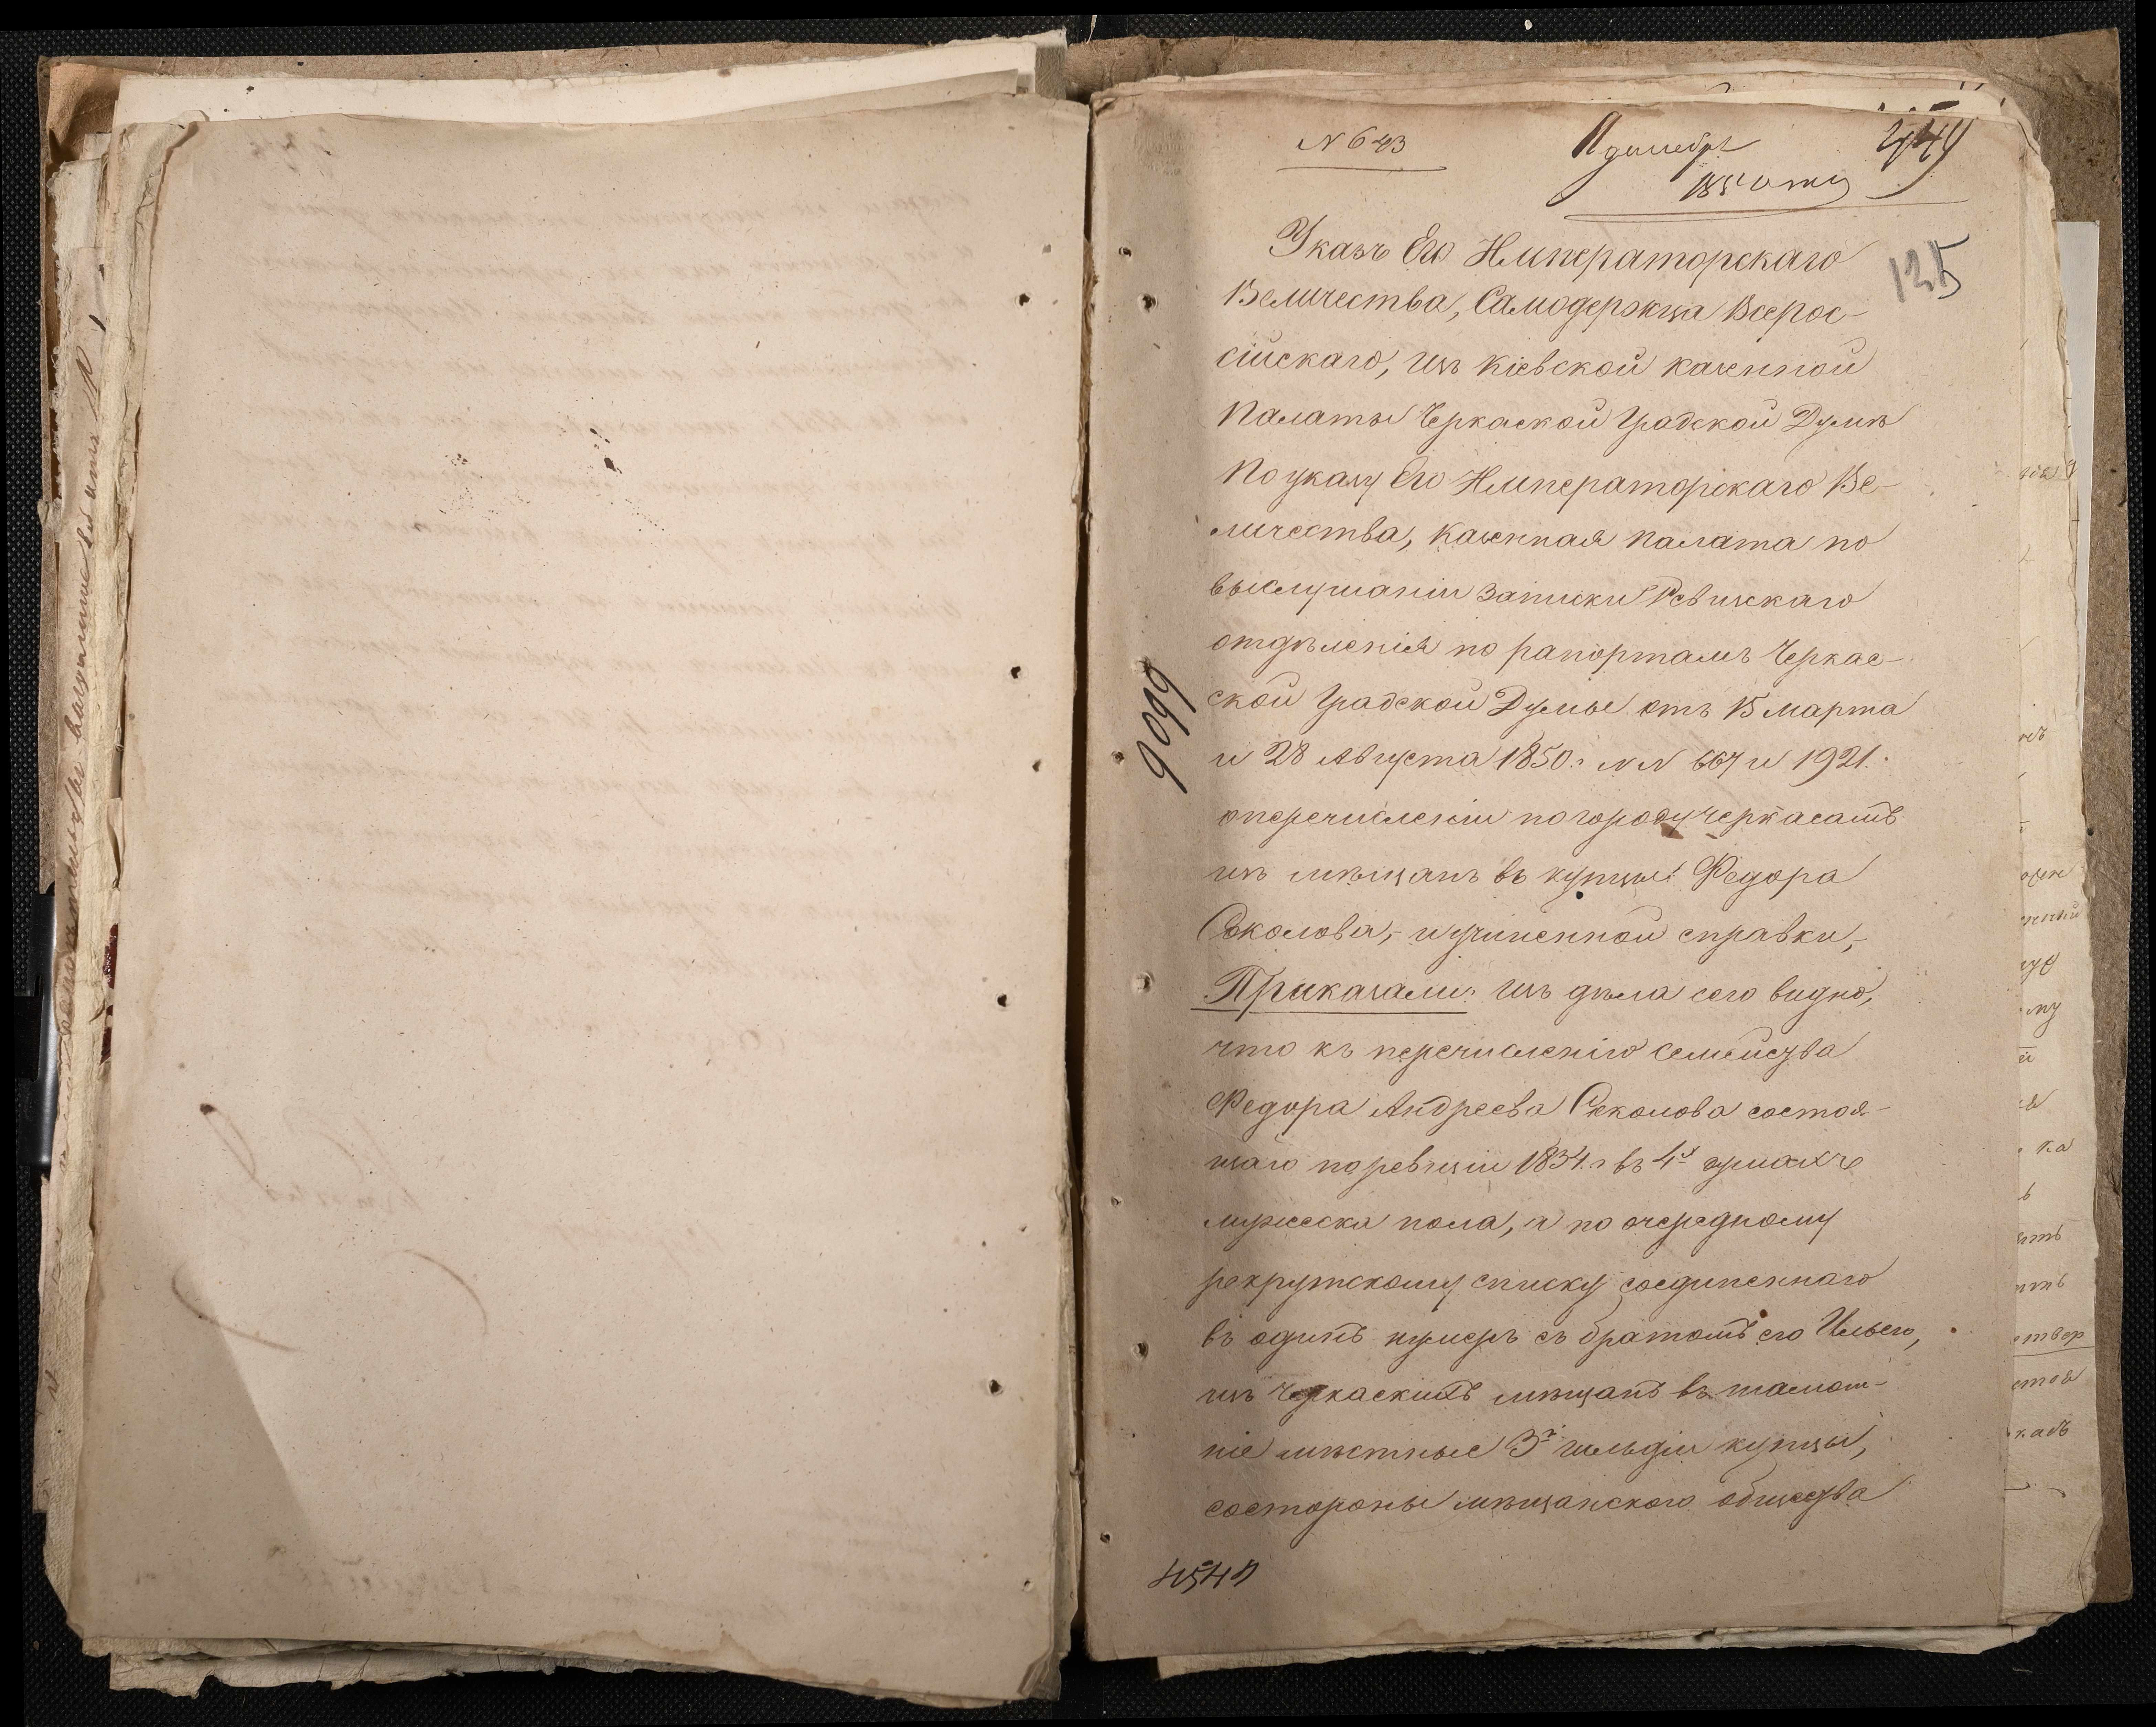 N 643
11 декабря
1850 г.
135
Указъ Его Императорскаго
Величества, Самодержца Всерос-
сійскаго, изъ Кіевской казенной
Палаты Черкаской Градской Думѣ
По указу Его Императорскаго Ве-
личества, Казенная Палата по
выслушаніи записки Ревизскаго
отдѣленія по рапортамъ Черкас-
ской Градской Думы отъ 15 марта
и 28 Августа 1850 г. NN 667 и 1921.
о перечисленіи по городу Черкасамъ
изъ мѣщанъ въ купцы Федора
Соколова, и учиненной справки,
Приказали: изъ дѣла сего видно,
что къ перечисленію семейства
Федора Андреева Соколова состоя-
щаго по ревизіи 1834 г. въ 4х душахъ
мужеска пола, а по очередному
рекрутскому списку соединеннаго
въ одинъ нумеръ съ братомъ его Ильею,
изъ Черкаскихъ мѣщанъ въ тамош-
ніе мѣстные 3й гильдіи купцы,
состороны мѣщанского общества
9099